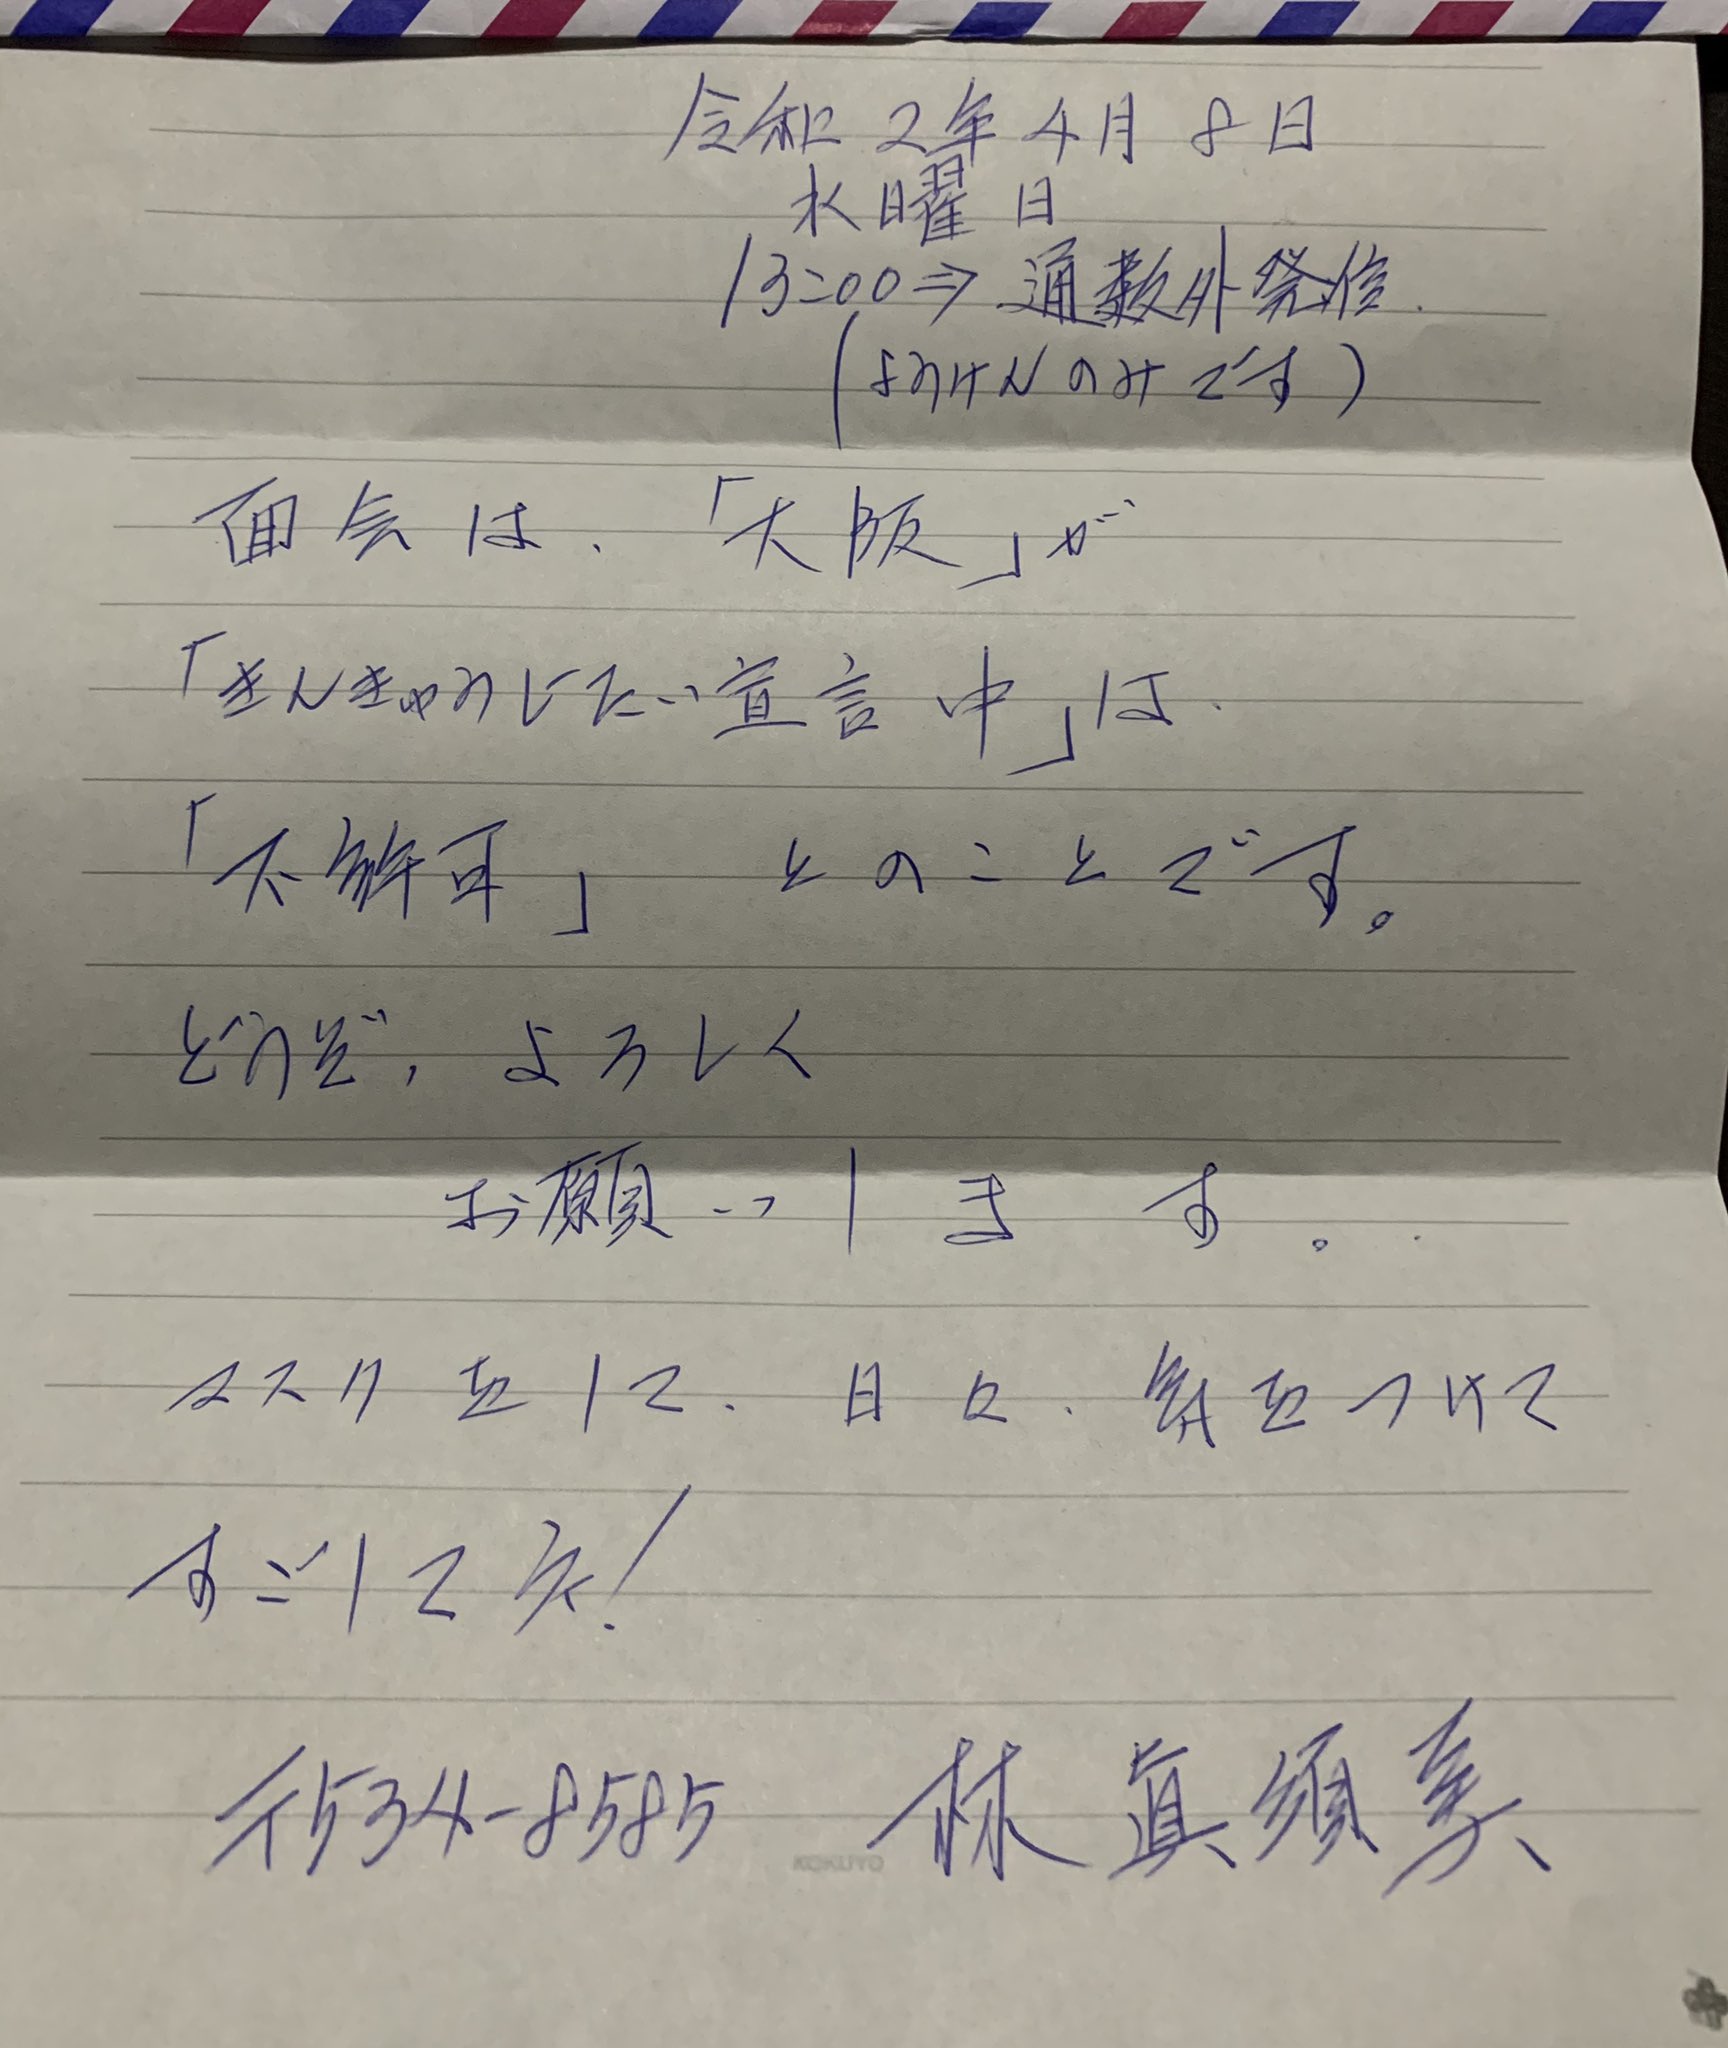 令和2年4月8日
水曜日
13:00⇒通数外発信
(ようけんのみです)
面会は、「大阪」が
「きんきゅうじたい宣言中」は、
「不許可」とのことです。
どうぞ、よろしく
お願いします。
マスクをして、日々、気をつけて
すごしてネ!
〒534-8585 林眞須美